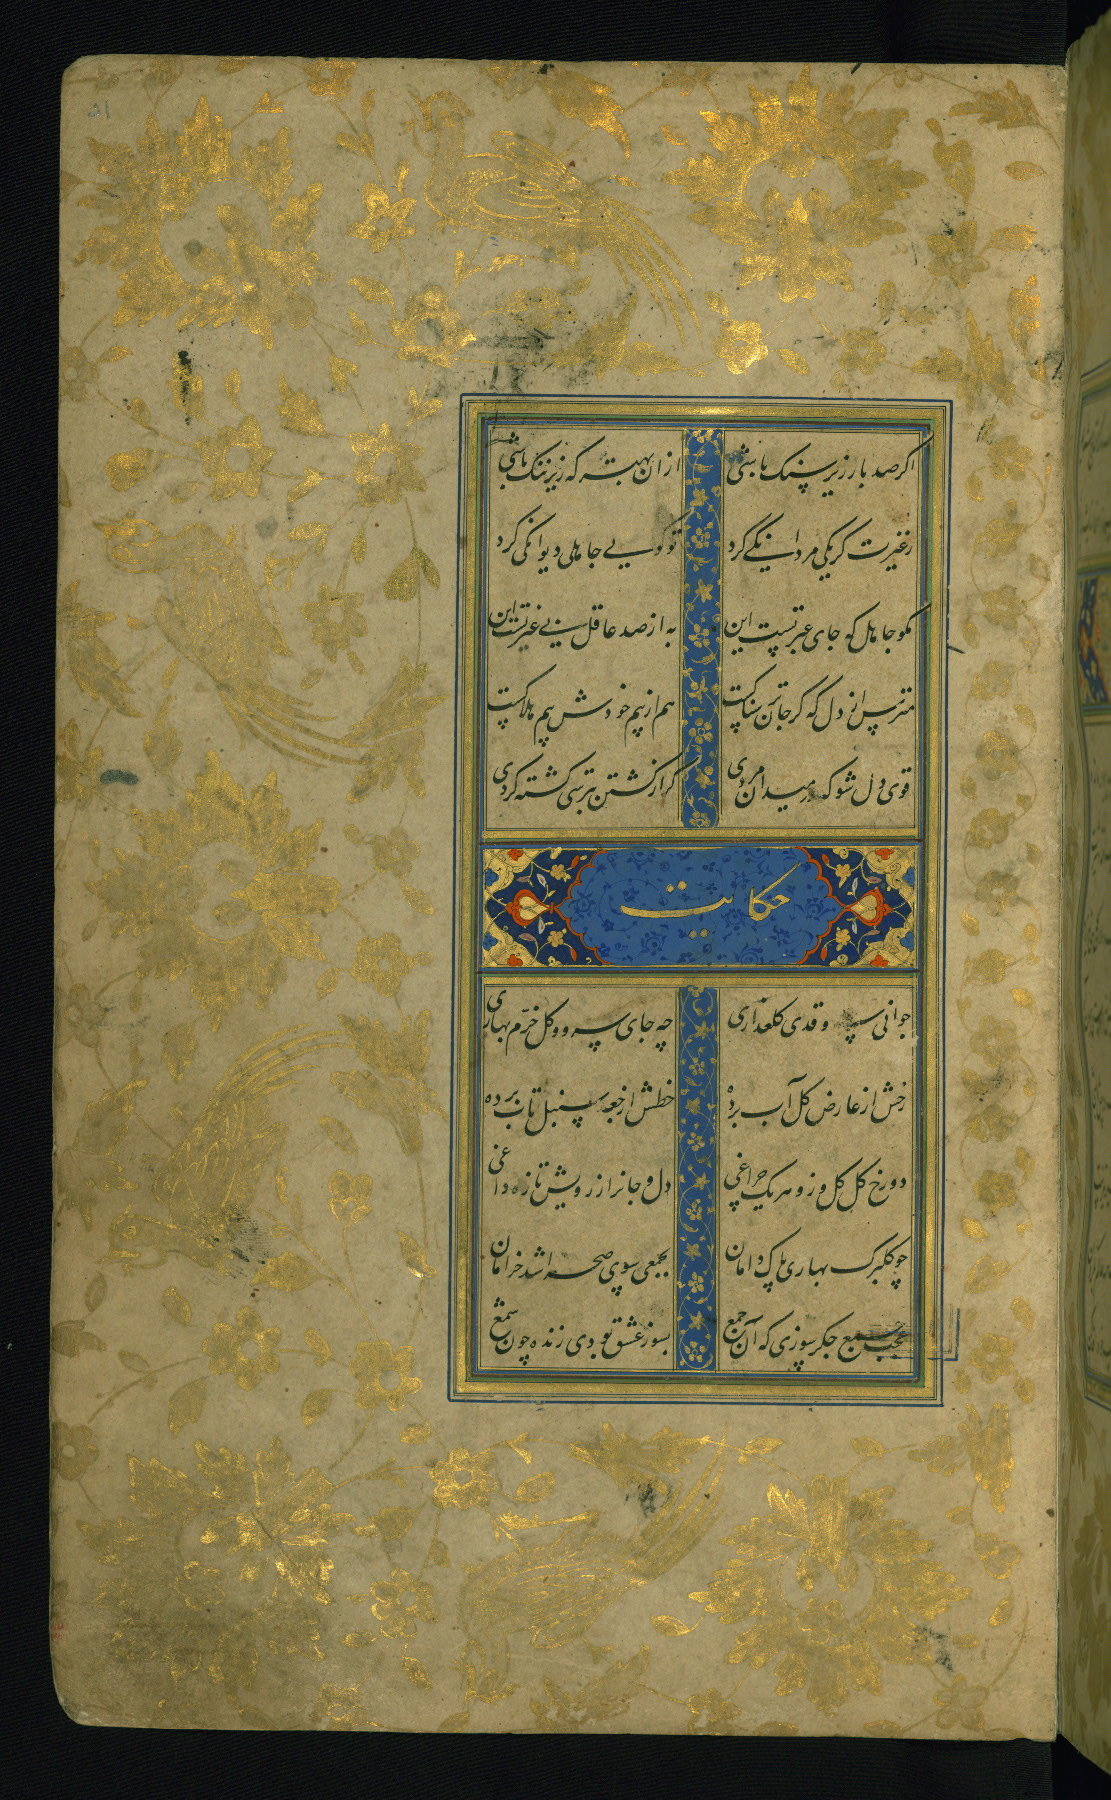 اگر صد بار زیر سنگ باشی از ان بهتر که زیر ننگ باشی
ز غیرت گر یکی مردانیکی کرد تو گویی جاهلی دیوانکی کرد
مکو جاهل که جای عبرتست این به از صد عاقل بی غیرتست این
مترس از دل که گر جا ترسناکست هم از بیم خودش بیم هلاکست
قوی دل شو که در میدان مردی گر از کشتن بترسی کشته کردی
حکایت
جوانی سرو قدی کلعذاری چه جای سرو و کل خرّم بهاری
رخش از عارض کل آب برده خطش از جعد سنبل تاب برده
دو رخ کل کل و زو هر یک چراغی دل و جانرا ز رویش تازه داغی
چو کلبرک بهاری پاک دامان بجمعی سوی صحرا شد خرامان
عجب شمع جکرسوزی که آن جمع بسوز عشق او بودی زنده چون شمع